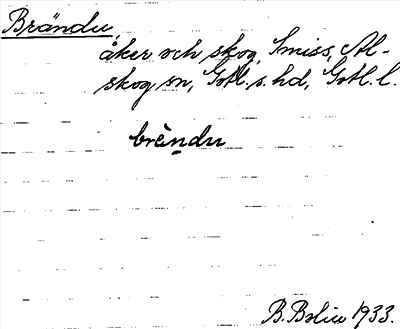 Brändu,
åker och skog, Smiss, Al-
skog sn, Gotl. s. hd, Gotl. l.
brèndu
B. Bolin 1933.